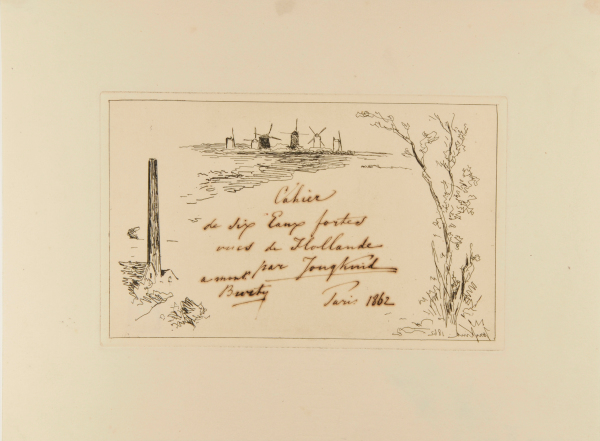 Cahier
de six Eaux fortes
vues de Hollande
par Jongkind
Burty Paris 1862